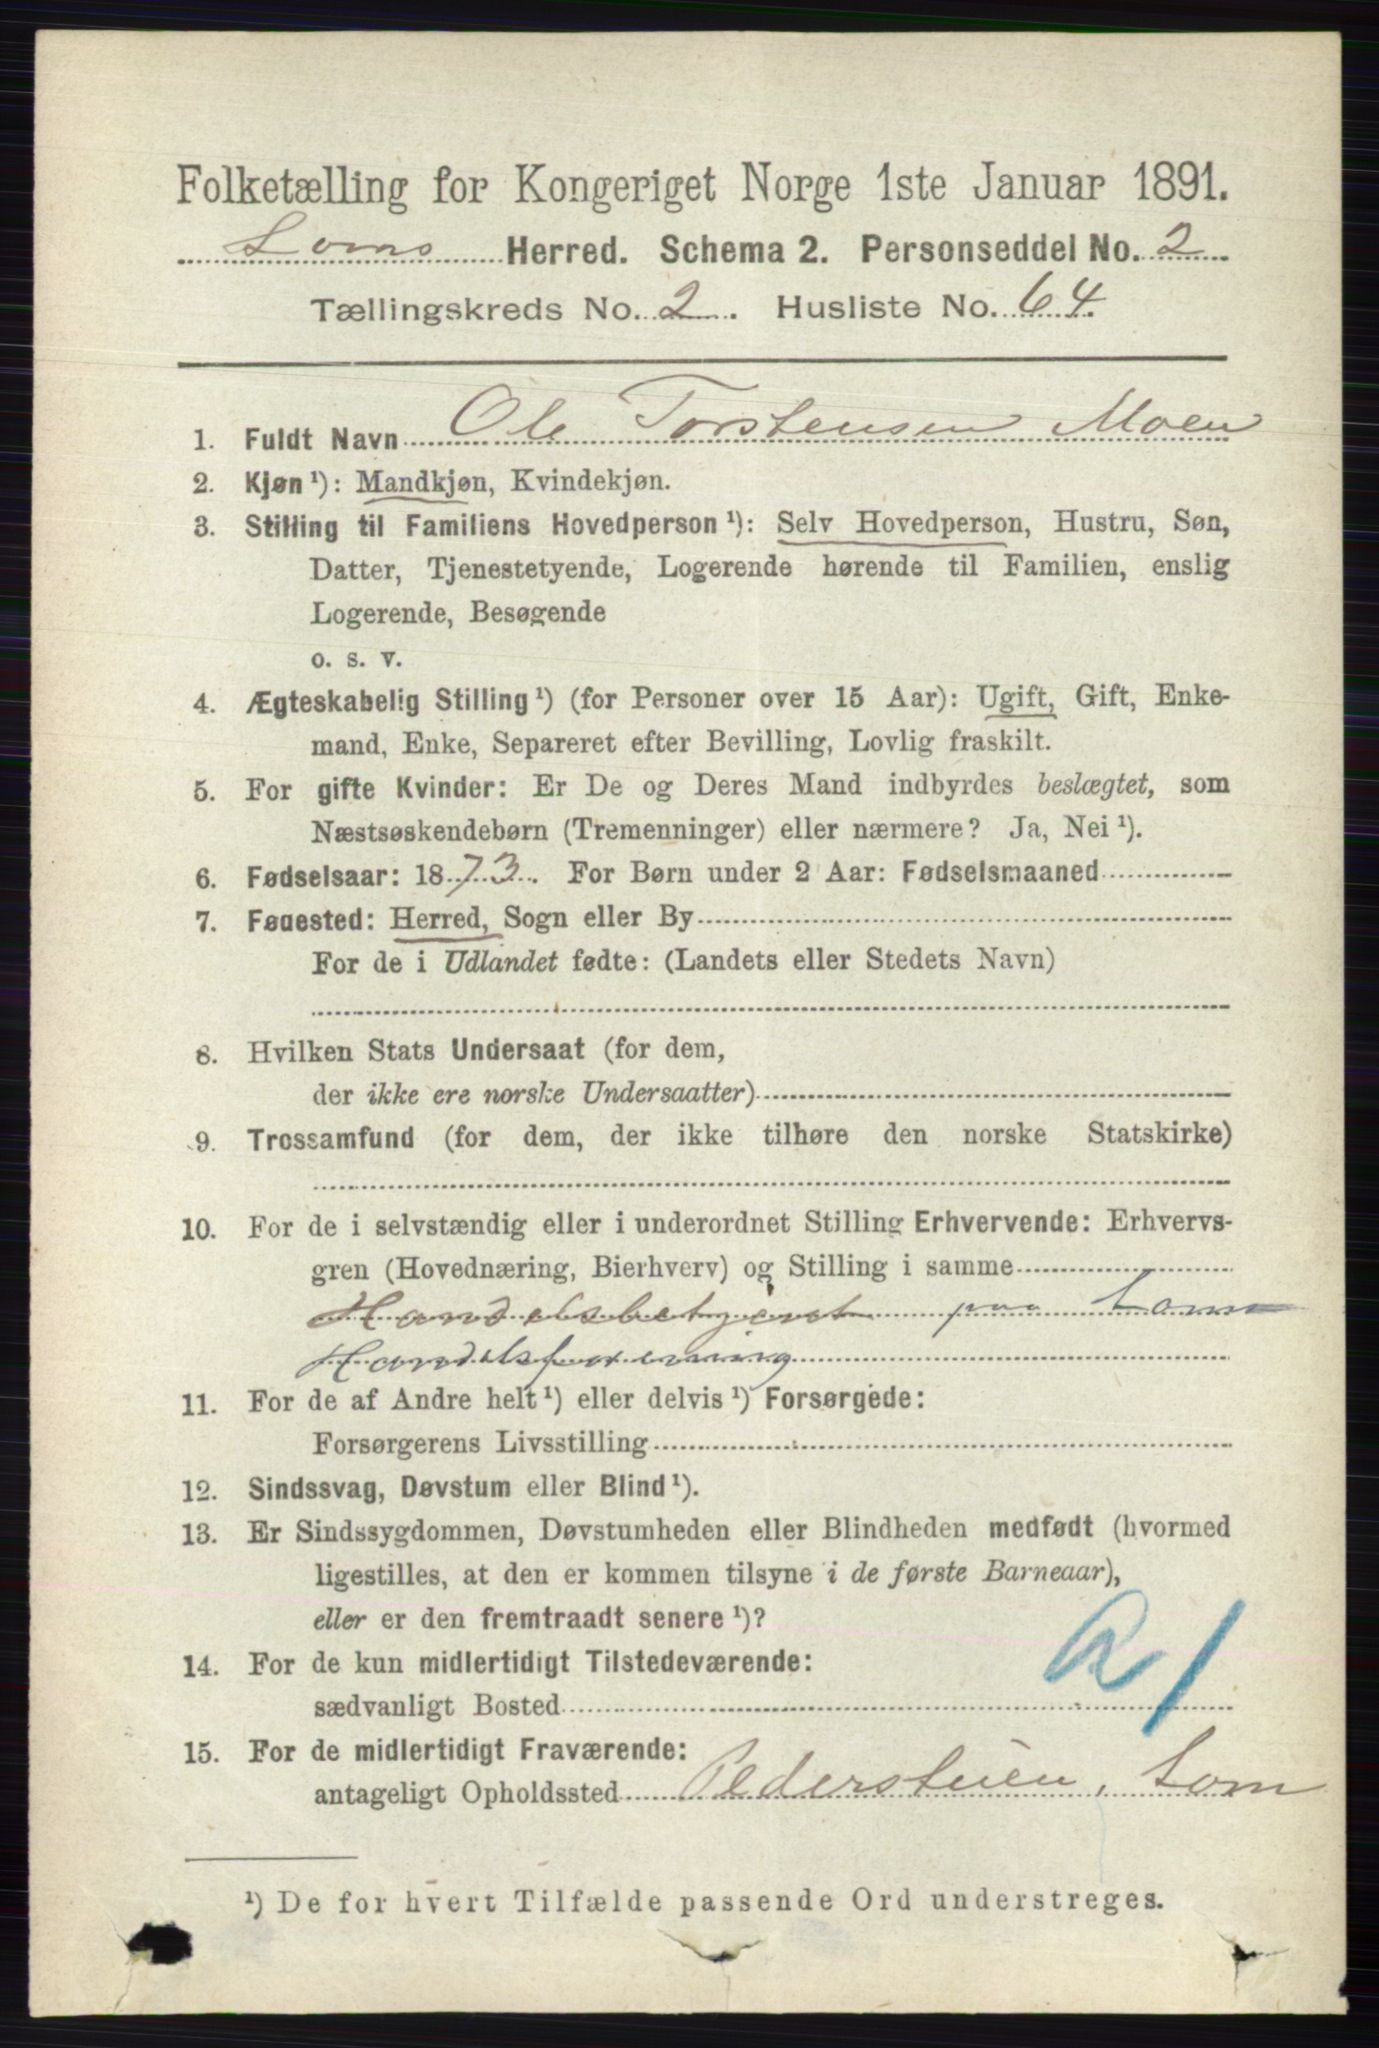 Folketælling for Kongeriget Norge 1ste Januar 1891.
Loms Herred. Schema 2. Personseddel No. 2
Tællingskreds No. 2. Husliste No. 64.
1. Fuldt Navn Ole Torstensen Moen
2. Kjøn ¹): Mandkjøn, Kvindekjøn.
3. Stilling til Familiens Hovedperson ¹): Selv Hovedperson, Hustru, Søn,
Datter, Tjenestetyende, Logerende hørende til Familien, enslig
Logerende, Besøgende
o. s. v.
4. Ægteskabelig Stilling ¹) (for Personer over 15 Aar): Ugift, Gift, Enke-
mand, Enke, Separeret efter Bevilling, Lovlig fraskilt.
5. For gifte Kvinder: Er De og Deres Mand indbyrdes beslægtet, som
Næstsøskendebørn (Tremenninger) eller nærmere? Ja, Nei ¹).
6. Fødselsaar: 1873. For Børn under 2 Aar: Fødselsmaaned
7. Føuested: Herred, Sogn eller By
For de i Udlandet fødte: (Landets eller Stedets Navn)
8. Hvilken Stats Undersaat (for dem,
der ikke ere norske Undersaatter)
9. Trossamfund (for dem, der ikke tilhøre den norske Statskirke)
10. For de i selvstændig eller i underordnet Stilling Erhvervende: Erhvervs-
gren (Hovednæring, Bierhverv) og Stilling i samme
Handelsbetjent paa Loms
Handelsforening
11. For de af Andre helt ¹) eller delvis ¹) Forsørgede:
Forsørgerens Livsstilling
12. Sindssvag, Døvstum eller Blind ¹).
13. Er Sindssygdommen, Døvstumheden eller Blindheden medfødt (hvormed
ligestilles, at den er kommen tilsyne i de første Barneaar),
eller er den fremtraadt senere ¹)?
14. For de kun midlertidigt Tilstedeværende:
sædvanligt Bosted
15. For de midlertidigt Fraværende:
antageligt Opholdssted Pederstuen, Lom
¹) De for hvert Tilfælde passende Ord understreges.